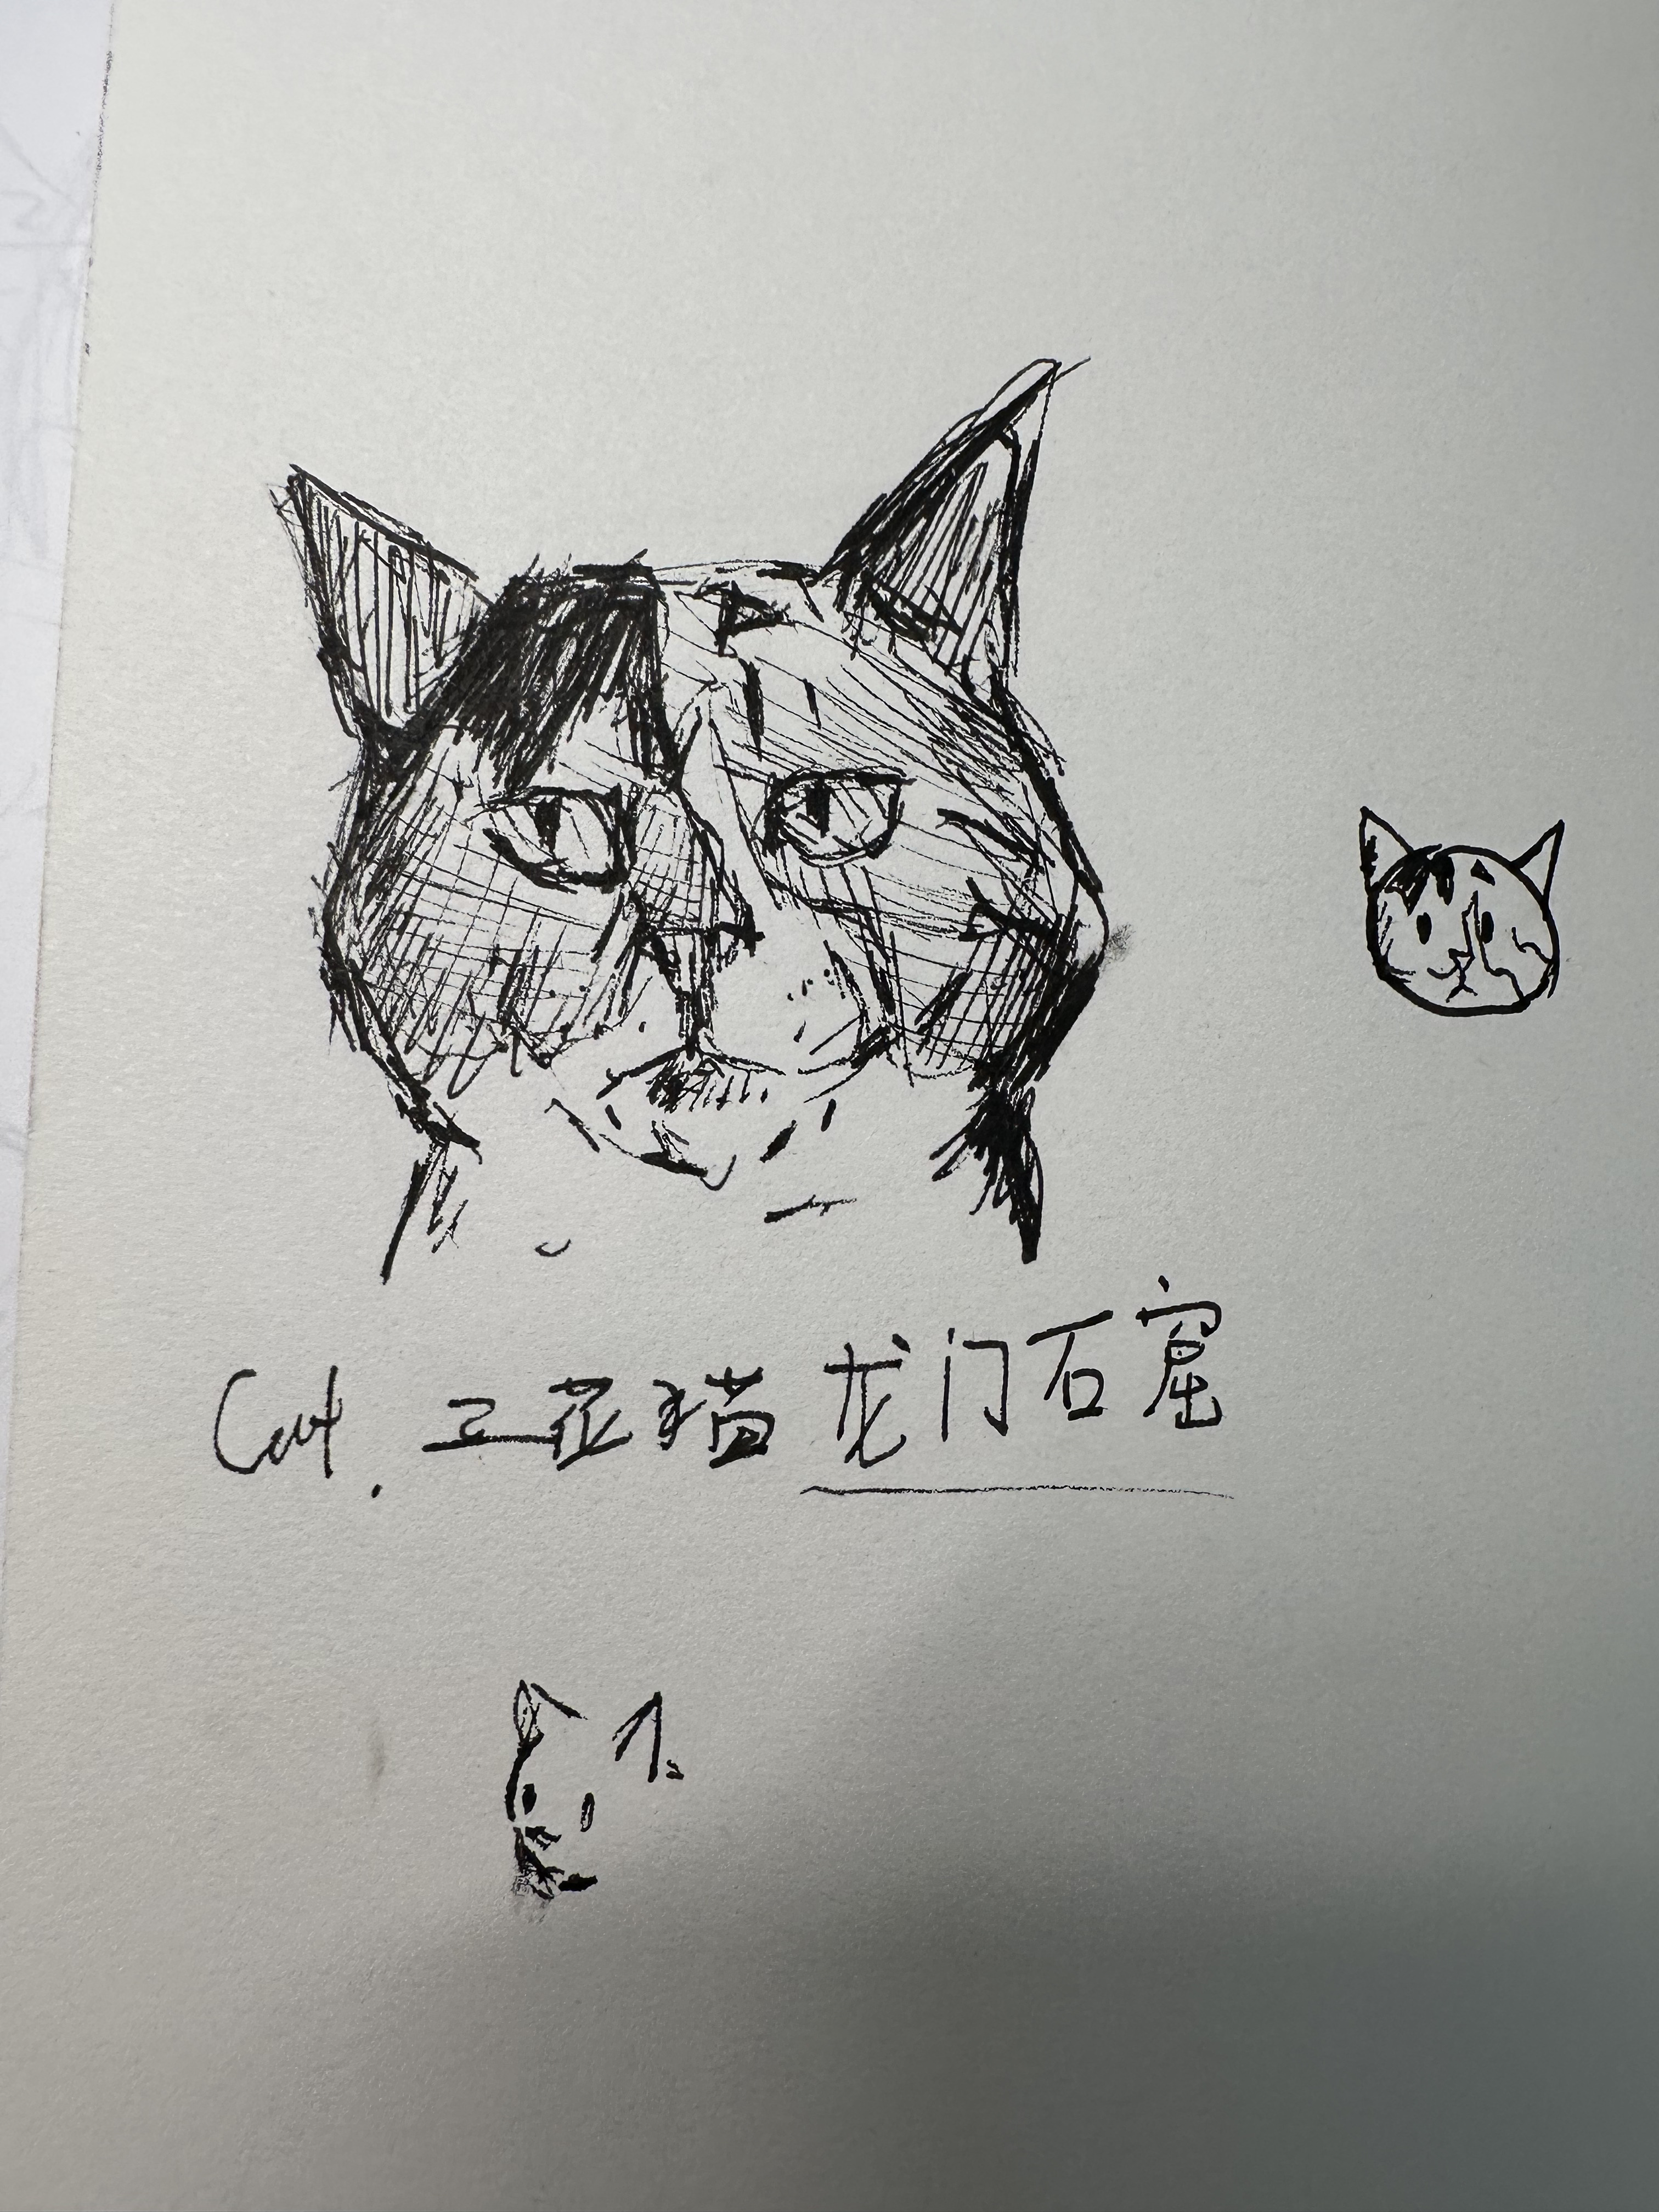 Cat. 三花猫 龙门石窟